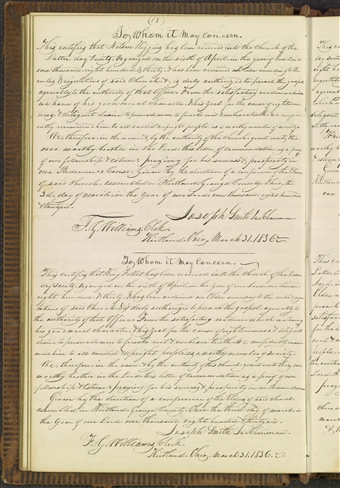 (15)
To, Whom it May concern.
This certifies that Nelson Higgins has been received into the church of the
Latter day Saints, Organized on the sixth of April in the year of our Lord
one thousand eight hundred & thirty, & has been ordained an Elder according to the
rules & regulations of said Church, & is duly authorized to preach the gospel
agreeably to the authority of that Office. From the satisfactory evidence which
we have of his good moral character, & his zeal for the cause of righteous-
ness, & diligent desire to persuade men to forsake evil & embrace truth, we confi-
dently recommend him to all candid & upright people as a worthy member of society.
We, therefore, in the name, & by the authority of this church, grant unto this
our worthy brother in the Lord, this letter of commendation as a proof
of our fellowship & esteem: praying for his success & prosperity in
our Redeemer's Cause. Given by the direction of a conference of the Elders
of said church, assembled in Kirtland, Geauga County, Ohio, the
third day of March, in the year of our Lord, one thousand eight hundred
& thirty six.
Joseph Smith Jr. Chairman
F. G. Williams, Clerk.
Kirtland, Ohio, March 31. 1836.
To, Whom it May Concern.
This certifies that has been received into the church of the Latter
day Saints, Organized on the sixth of April in the year of our Lord one thousand
eight hundred & thirty, & has been ordained an Elder according to the rules & regu-
lations of said Church, & is duly authorized to preach the gospel agreeably to
the authority of that Office. From the satisfactory evidence which we have of
his good moral character, & his zeal for the cause of righteousness, & diligent
desire to persuade men to forsake evil & embrace truth, we confidently recom-
mend him to all candid & upright people as a worthy member of society.
We, therefore, in the name, & by the authority of this church, grant unto this, our
worthy brother in the Lord, this letter of commendation as a proof of our
fellowship & esteem: praying for his success & prosperity in our Redeemer's Cause.
Given by the direction of a conference of the Elders of said church,
assembled in Kirtland, Geauga County, Ohio, the third day of March, in
the year of our Lord, one thousand eight hundred & thirty six.
Joseph Smith Jr. Chairman.
F. G. Williams, Clerk.
Kirtland, Ohio, March 31. 1836.